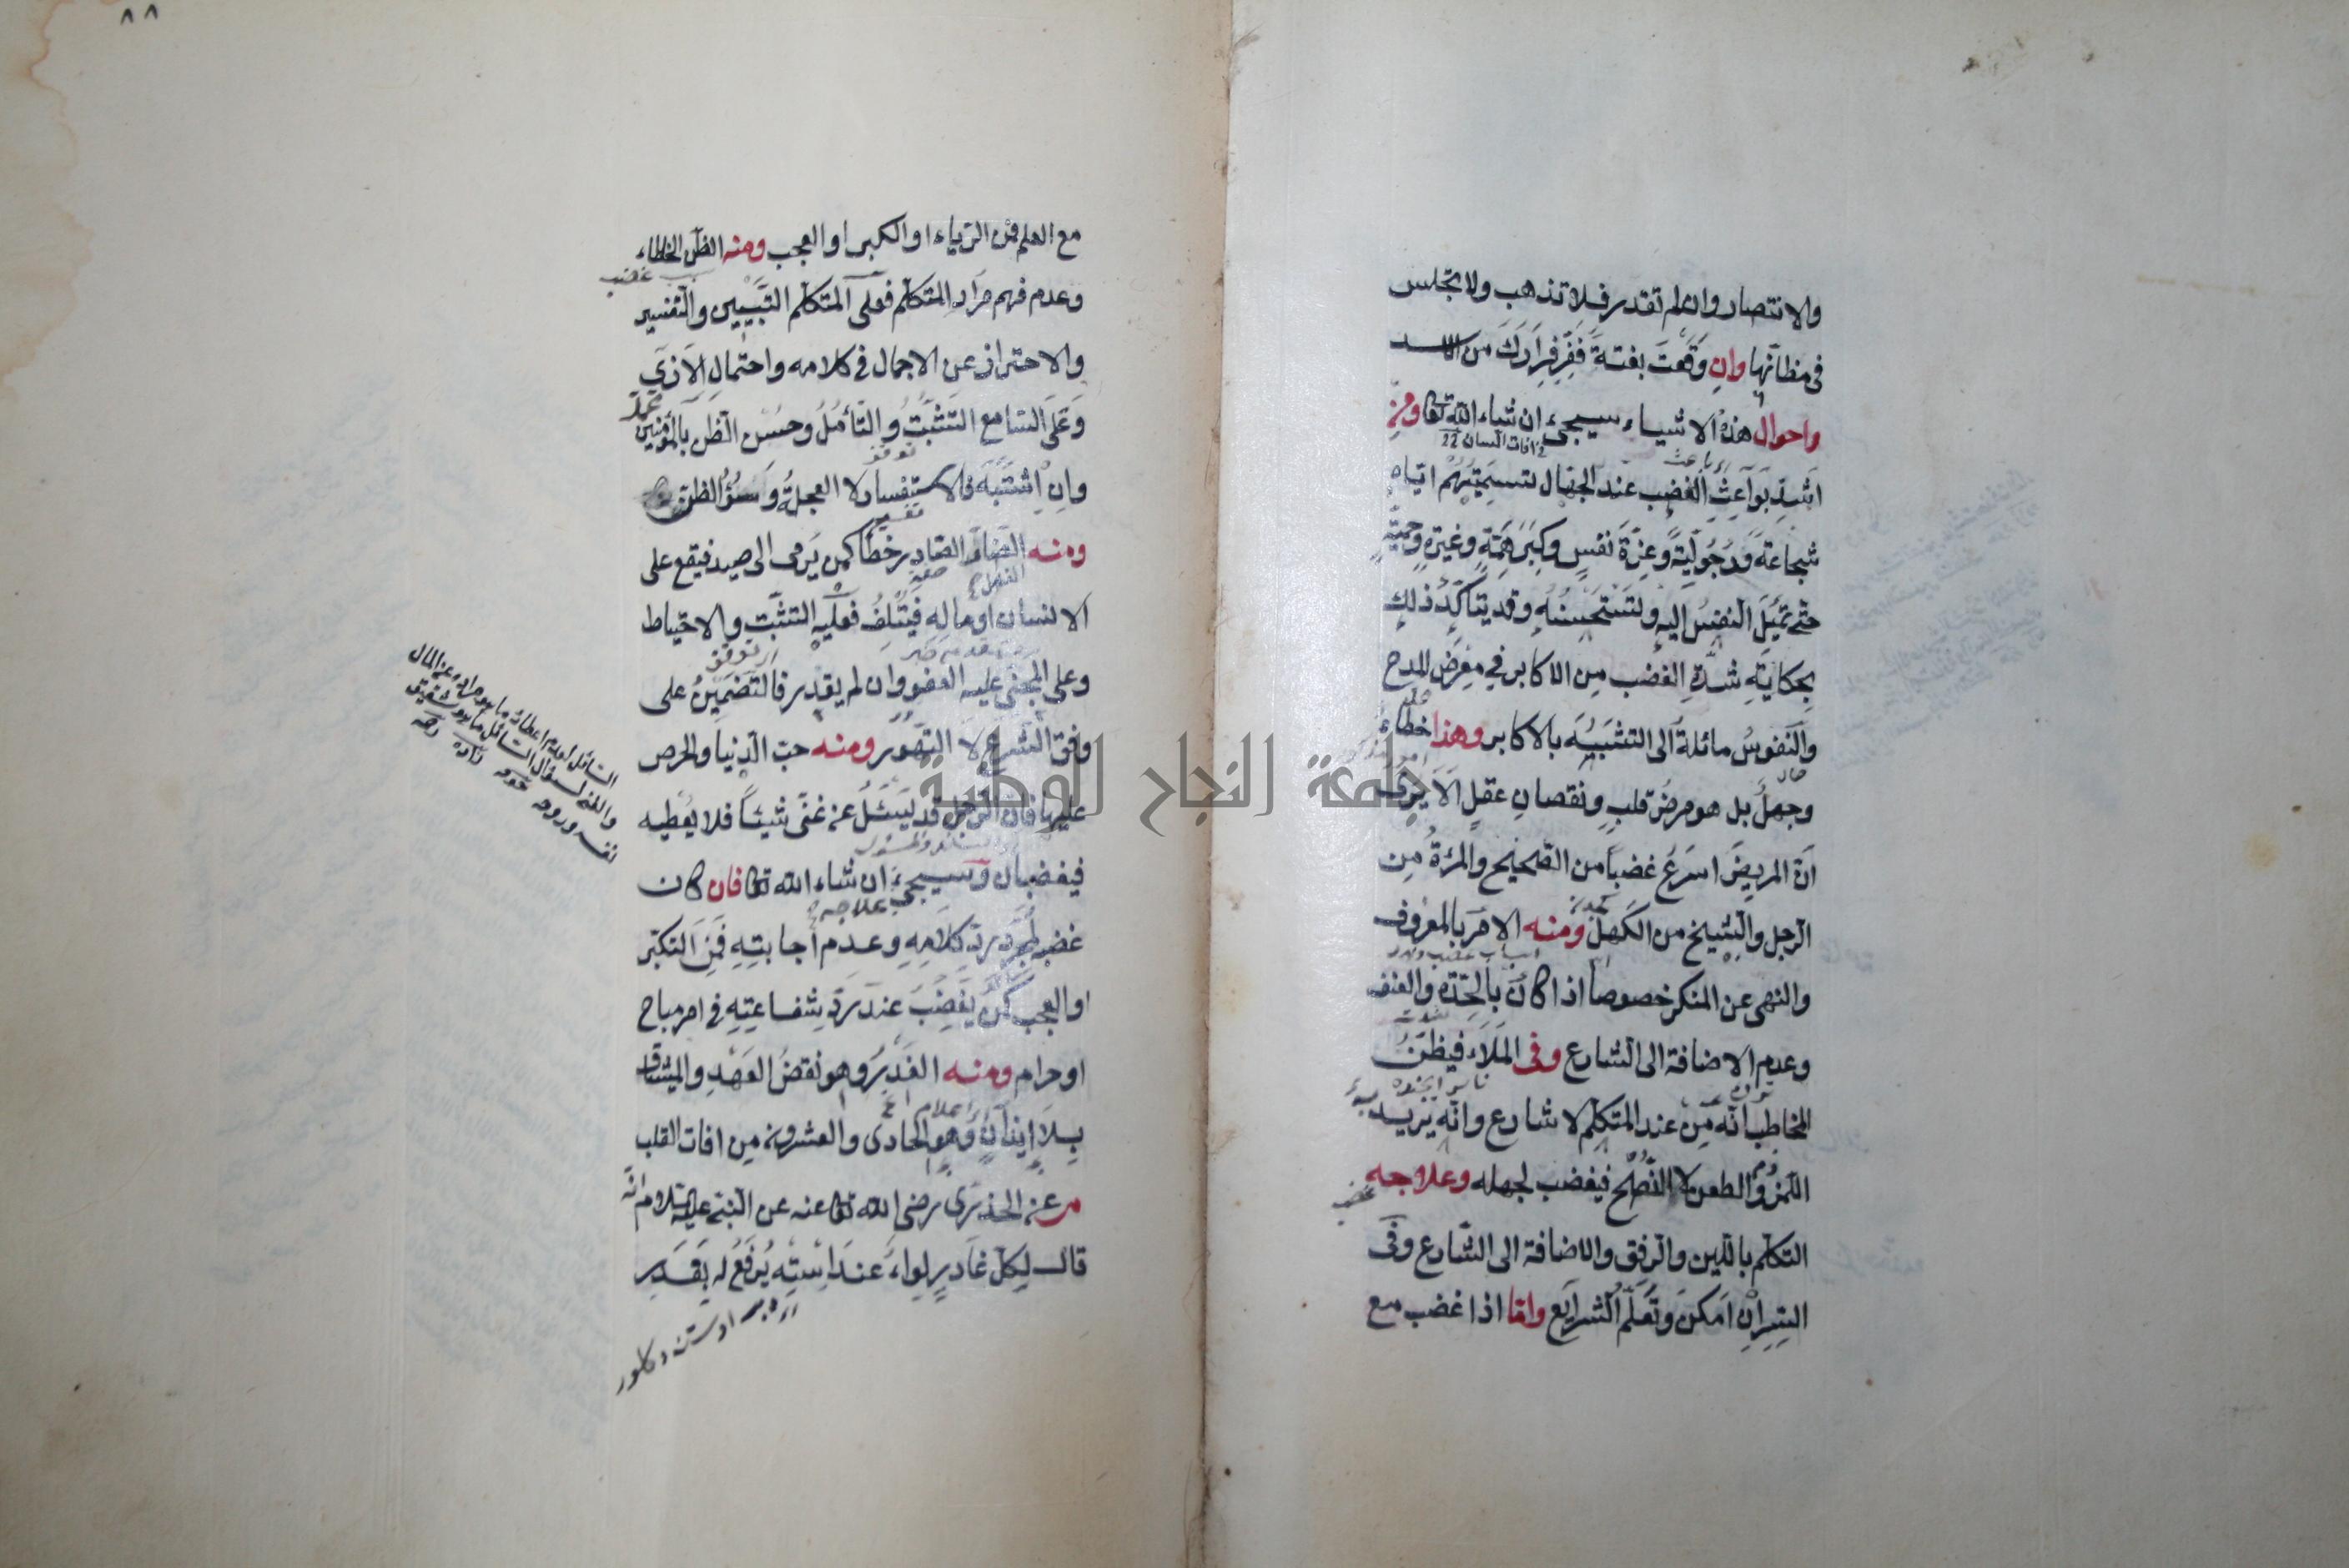 والانتصار وان لم تقدر فلا تذهب ولا تجلس
فى مظانها وان وقعت بغتة ففر فرارك من الاسد
واحوال هذه الاشياء سيجىء ان شاء الله تعا ومن
اشد بواعث الغضب عند الجهال تسميتهم اياه
شجاعة ورجولية وعزة نفس وكبر همة وغيرة وحمية
حتى تميل النفس اليه وتستحسنه وقد يتأكد ذلك
بحكاية شدة الغضب من الاكابر في معرض المدح
والنفوس مائلة الى التشبه بالاكابر وهذا خطاء
وجهل بل هو مرض قلب ونقصان عقل الا يرى
ان المريض اسرع غضبا من الصحيح والمرءة من
الرجل والشيخ من الكهل ومنه الامر بالمعروف
والنهى عن المنكر خصوصا اذا كان بالحدة والعنف
وعدم الاضافة الى الشارع وفى الملاء فيظن
المخاطب انه من عند المتكلم لا شارع وانه يريد به
اللمز والطعن لا النصح فيغضب لجهله وعلاجه
التكلم باللين والرفق والاضافة الى الشارع وفى
السر ان امكن وتعلم الشرايع واما اذا غضب مع
٨٨
مع العلم فمن الرياء او الكبر او العجب ومنه الظن الخطاء
سبب غضب
وعدم فهم مراد المتكلم فعلى المتكلم التبيين والتفسير
والاحتراز عن الاجمال فى كلامه واحتمال الاذى
وعلى السامع التثبت والتأمل وحسن الظن بالمؤمنين
وان اشتبه فالاستفسار لا العجلة وسوء الظن
ومنه الصادر خطأ كمن يرمى الى صيد فيقع على
الانسان او ماله فيتلف فعليه التثبت والاحتياط
وعلى المجنى عليه العفو وان لم يقدر فالتضمين على
وفق الشرع لا التهور ومنه حب الدنيا والحرص
عليها فان الرجل قد يسئل عن غنى شيئا فلا يعطيه
فيغضبان وسيجىء ان شاء الله تعا فان كان
غضبه لمجرد رد كلامه وعدم اجابته فمن التكبر
او العجب كمن يغضب عند رد شفاعته فى امر مباح
او حرام ومنه الغدر وهو نقض العهد والميثاق
بلا ايذان وهو الحادى والعشرون من افات القلب
م عن الخدرى رضى الله تعا عنه عن النبى عليه السلام انه
قال لكل غادر لواء عند استه يرفع له بقدر
جامعة النجاح الوطنية